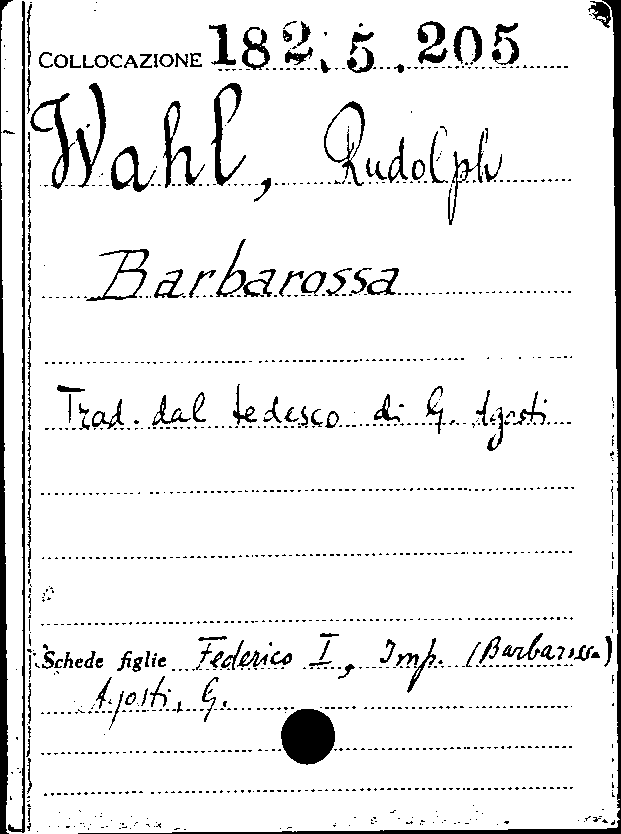 COLLOCAZIONE 182.5.205
Wahl, Rudolph
Barbarossa
Trad. dal tedesco di G. Agosti
Schede figlie Federico I, Imp. (Barbarossa)
Agosti, G.